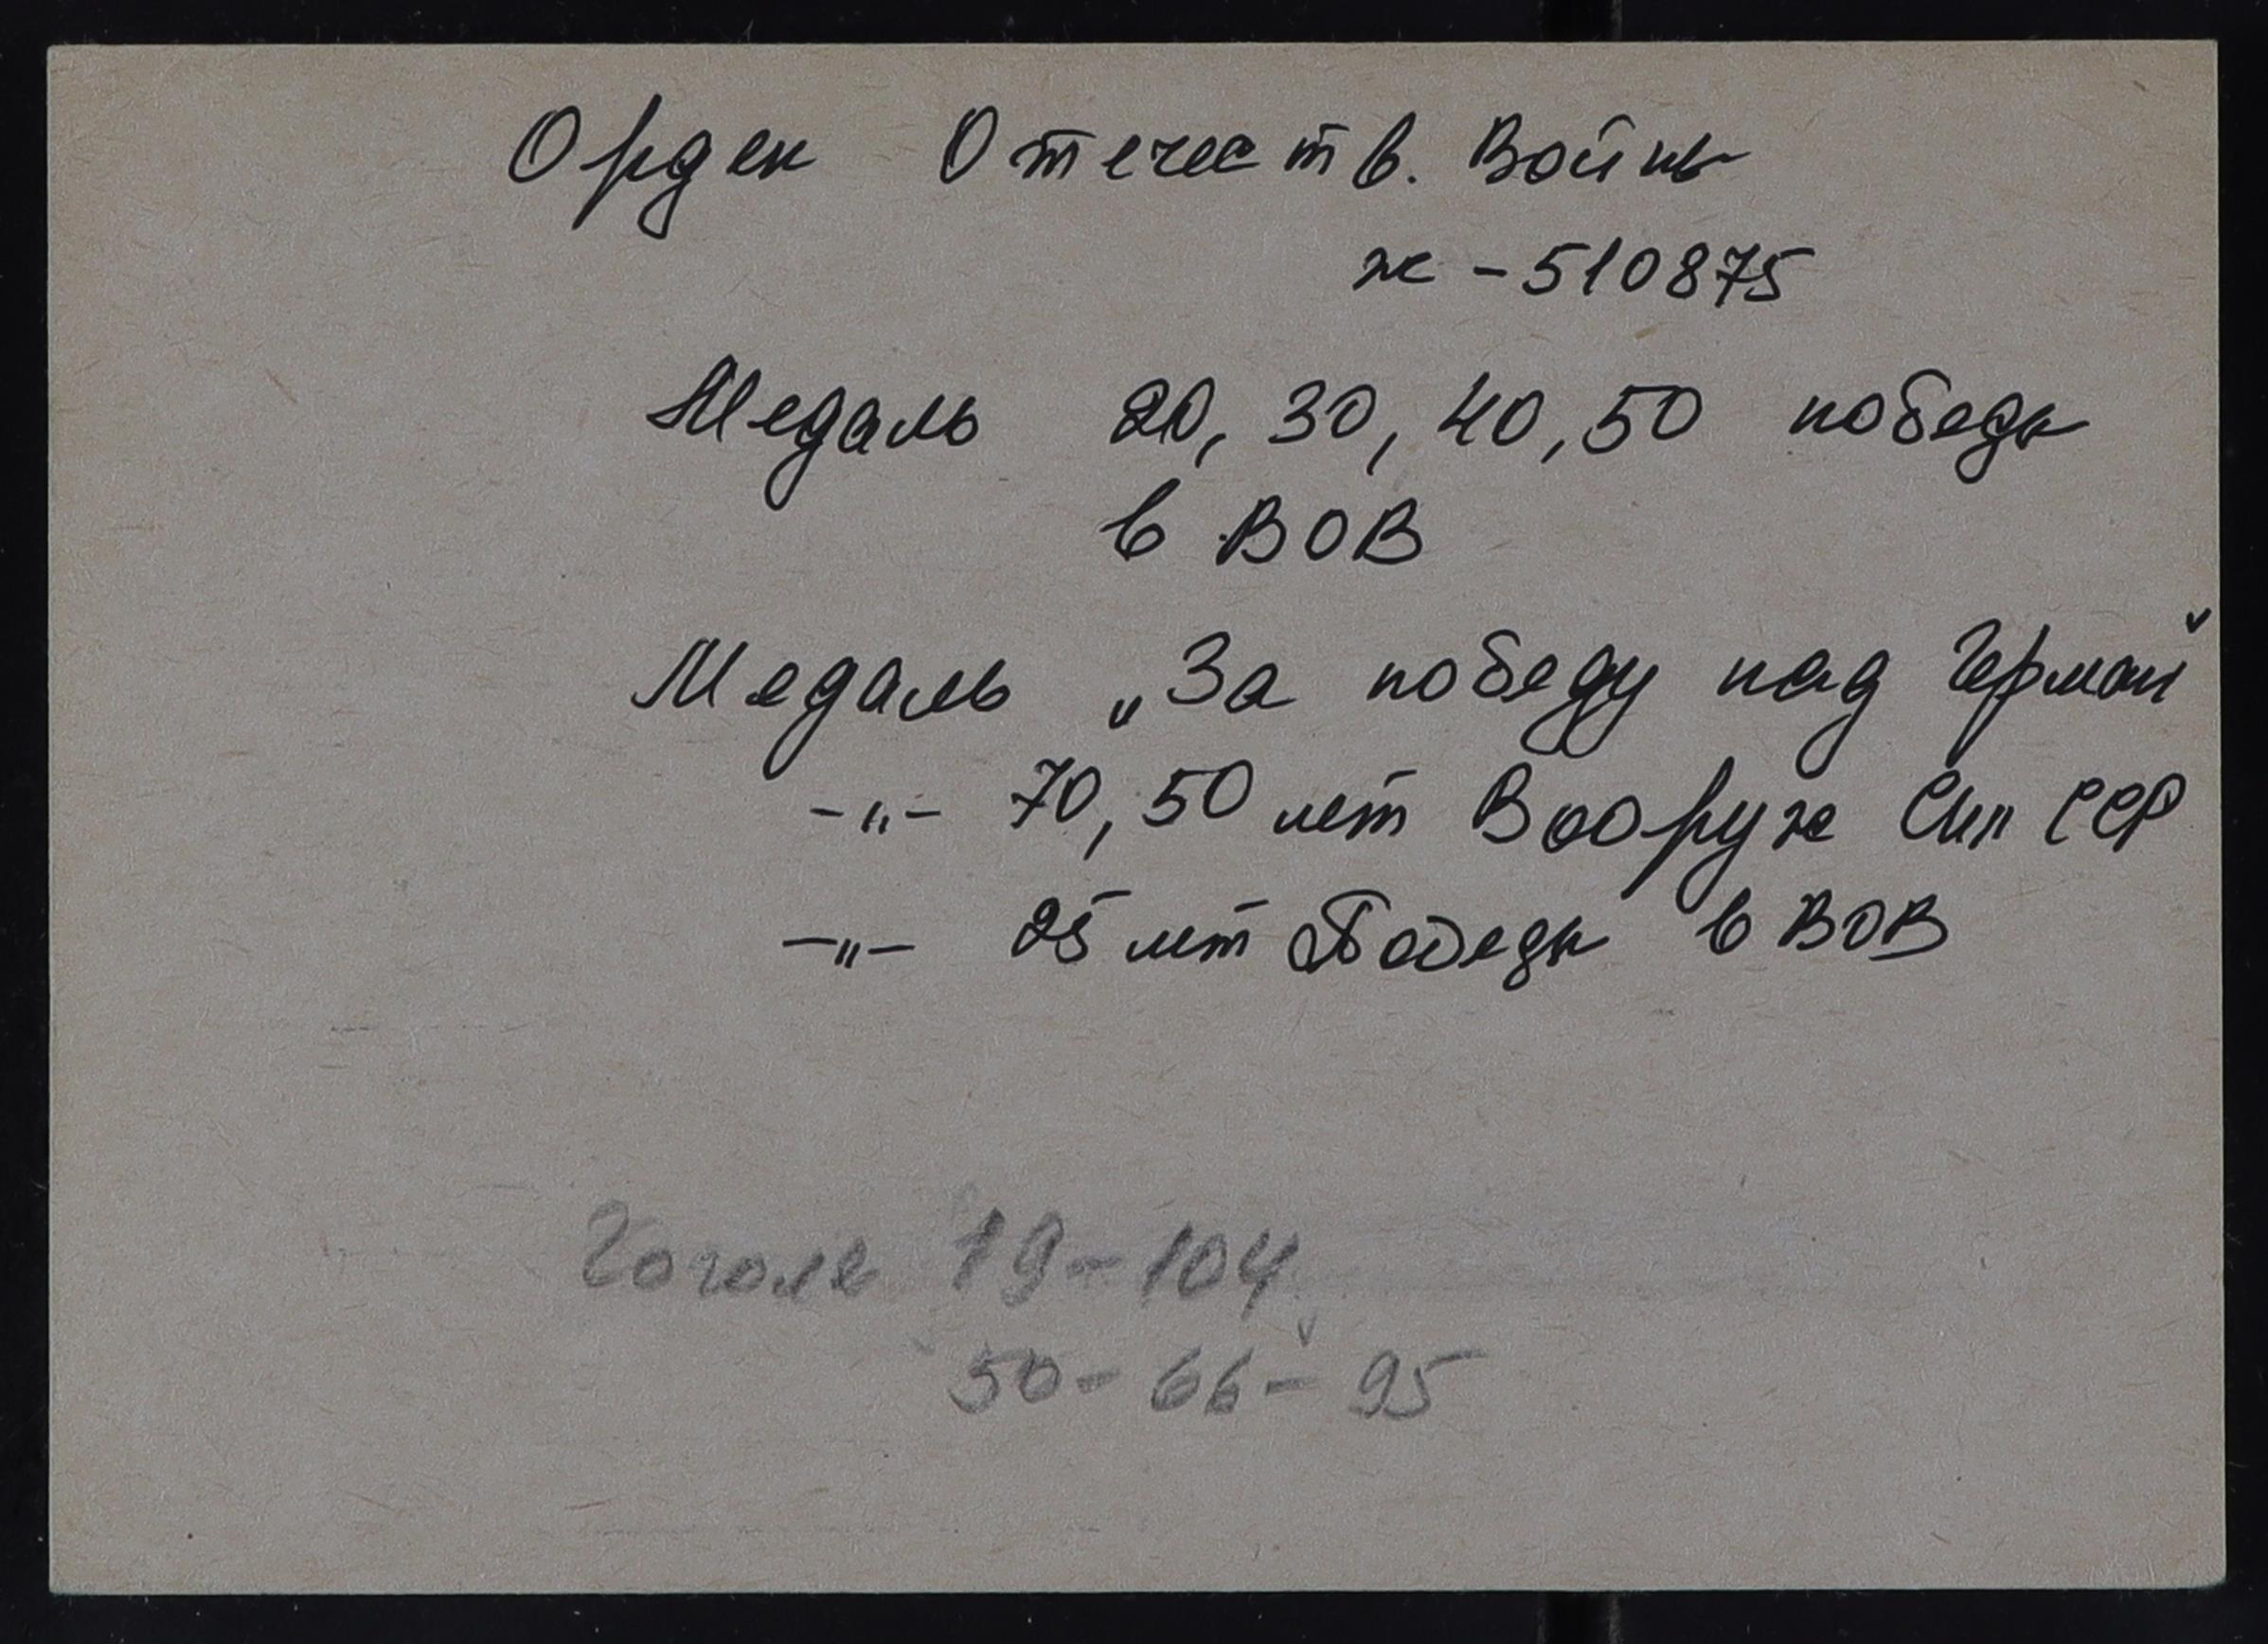 Орден Отечеств. Войны
ж - 510875
Медаль 20, 30, 40, 50 победы
в ВОВ
Медаль „За победу над Герман"
-"- 70, 50 лет Вооруж Сил ССР
-"- 25 лет Победы в ВОВ
Гоголя 19-104
50-66-95